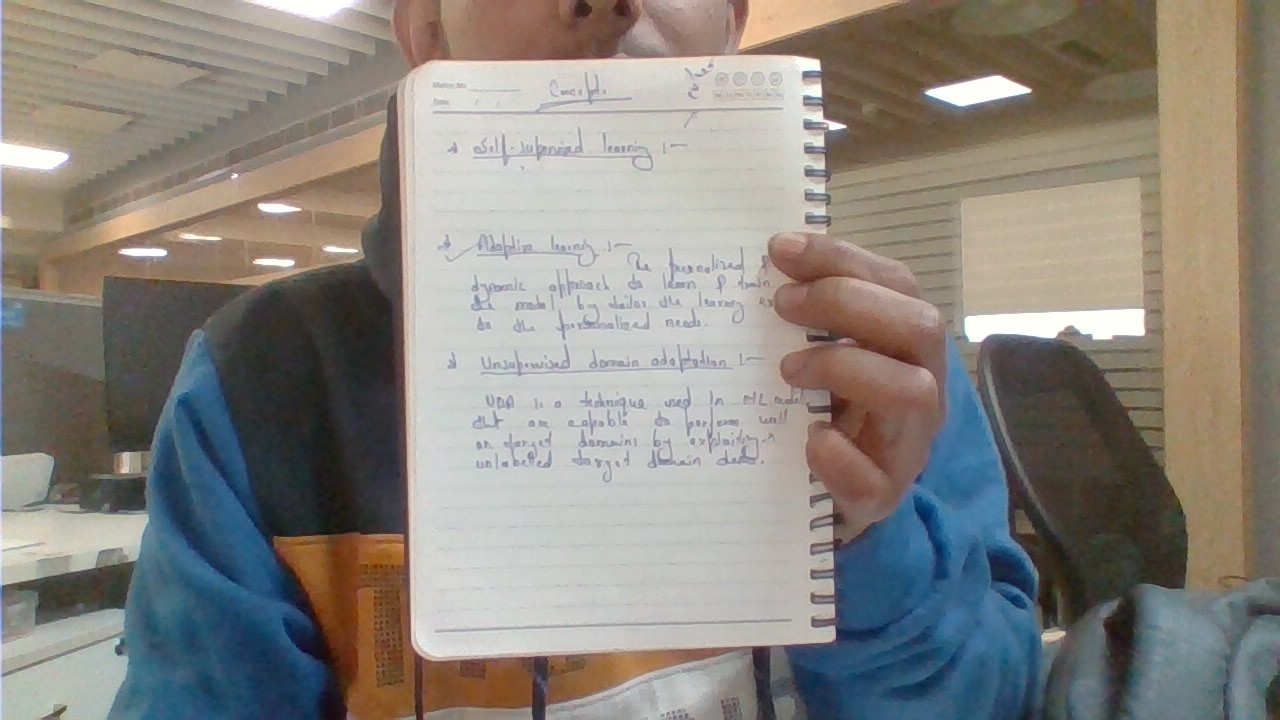 Memo No.
Date / /
Concepts
→ Self-supervised learning :-
→ Adaptive learning :-
The personalized &
dynamic approach to learn & train
the model by tailor the learning
to the personalized needs.
→ Unsupervised domain adaptation :-
UDA is a technique used in ML model
that are capable to perform well
on target domains by exploiting
unlabelled target domain data.